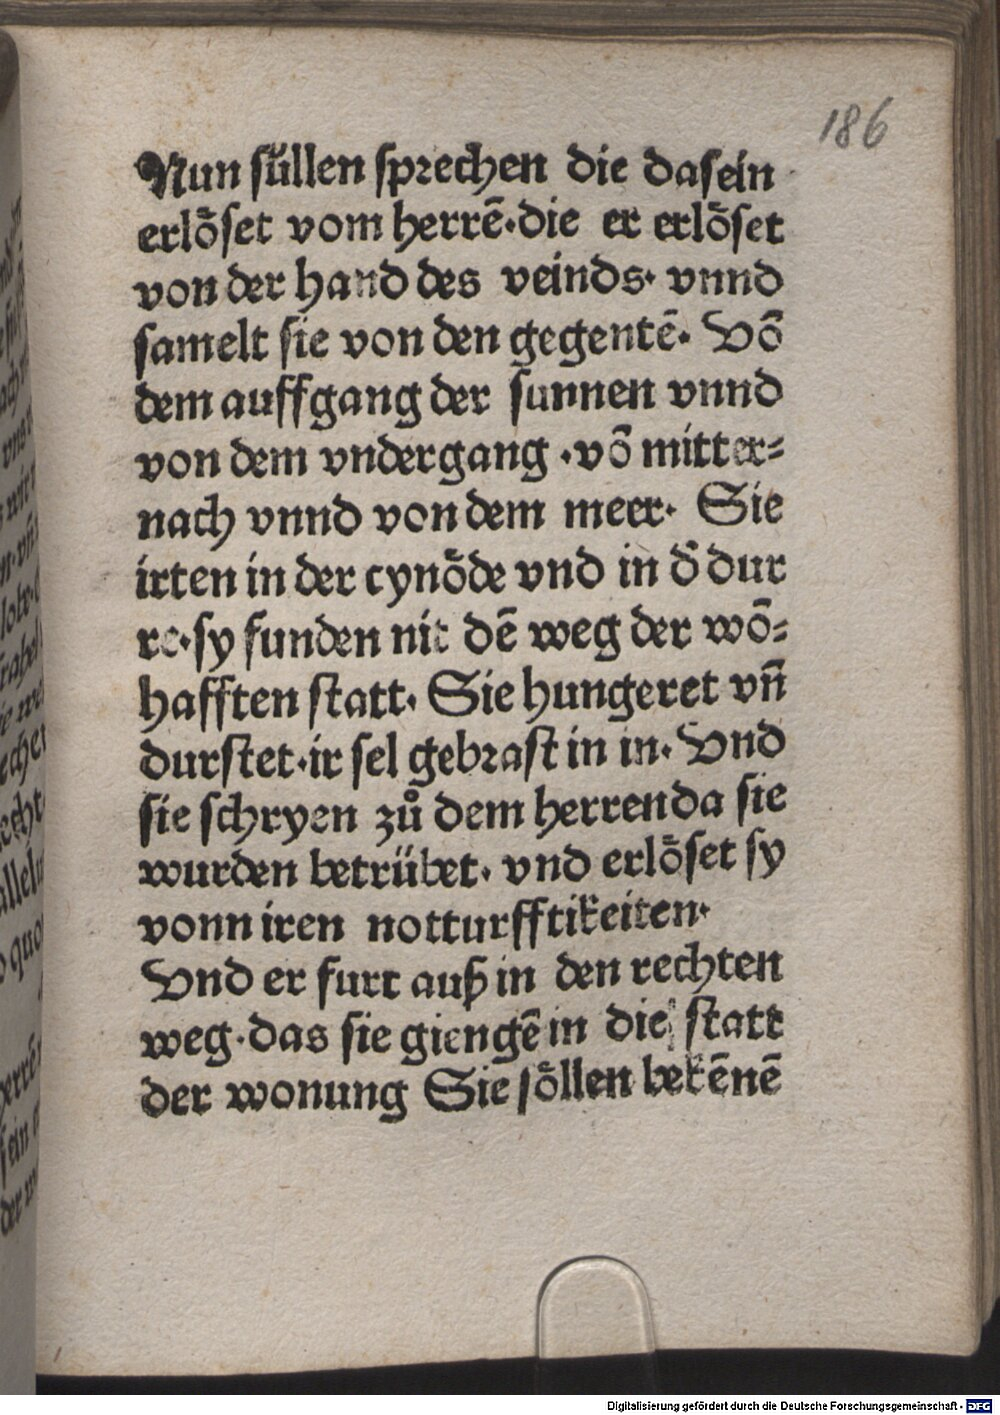 186
Nun süllen sprechen die dasein
erlöset vom herrē·die er erlöset
von der hand des veinds· vnnd
samelt sie von den gegentē· Vō
dem auffgang der sunnen vnnd
von dem vndergang ·vō mitter⸗
nach vnnd von dem meer· Sie
irten in der eynöde vnd in d̄ dur
re·sy funden nit dē weg der wō⸗
hafften statt· Sie hungeret vn̄
durstet·ir sel gebrast in in· Vnd
sie schryen zů dem herren da sie
wurden betrübet· vnd erlöset sy
vonn iren notturfftikeiten·
Vnd er furt auß in den rechten
weg·das sie giengē in die statt
der wonung Sie söllen bekēnē
Digitalisierung gefördert durch die Deutsche Forschungsgemeinschaft - DFG